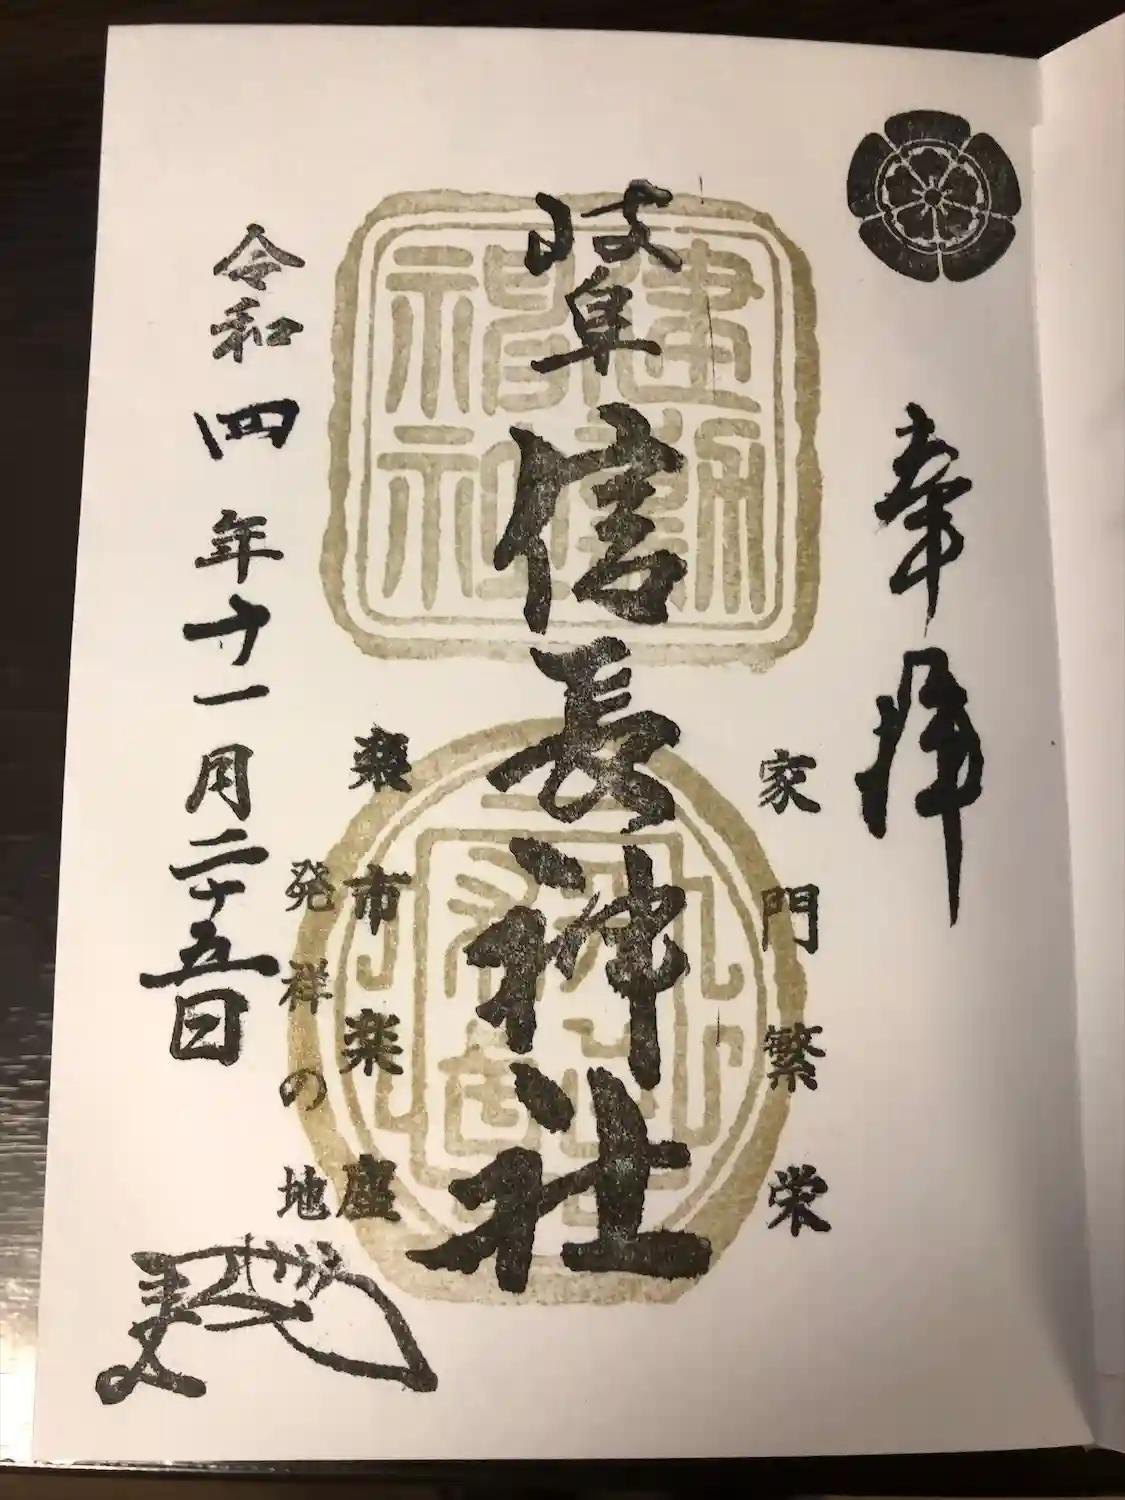 奉拝
家門繁栄
岐阜信長神社
建勲神社
楽市楽座
発祥の地
令和四年十一月二十五日